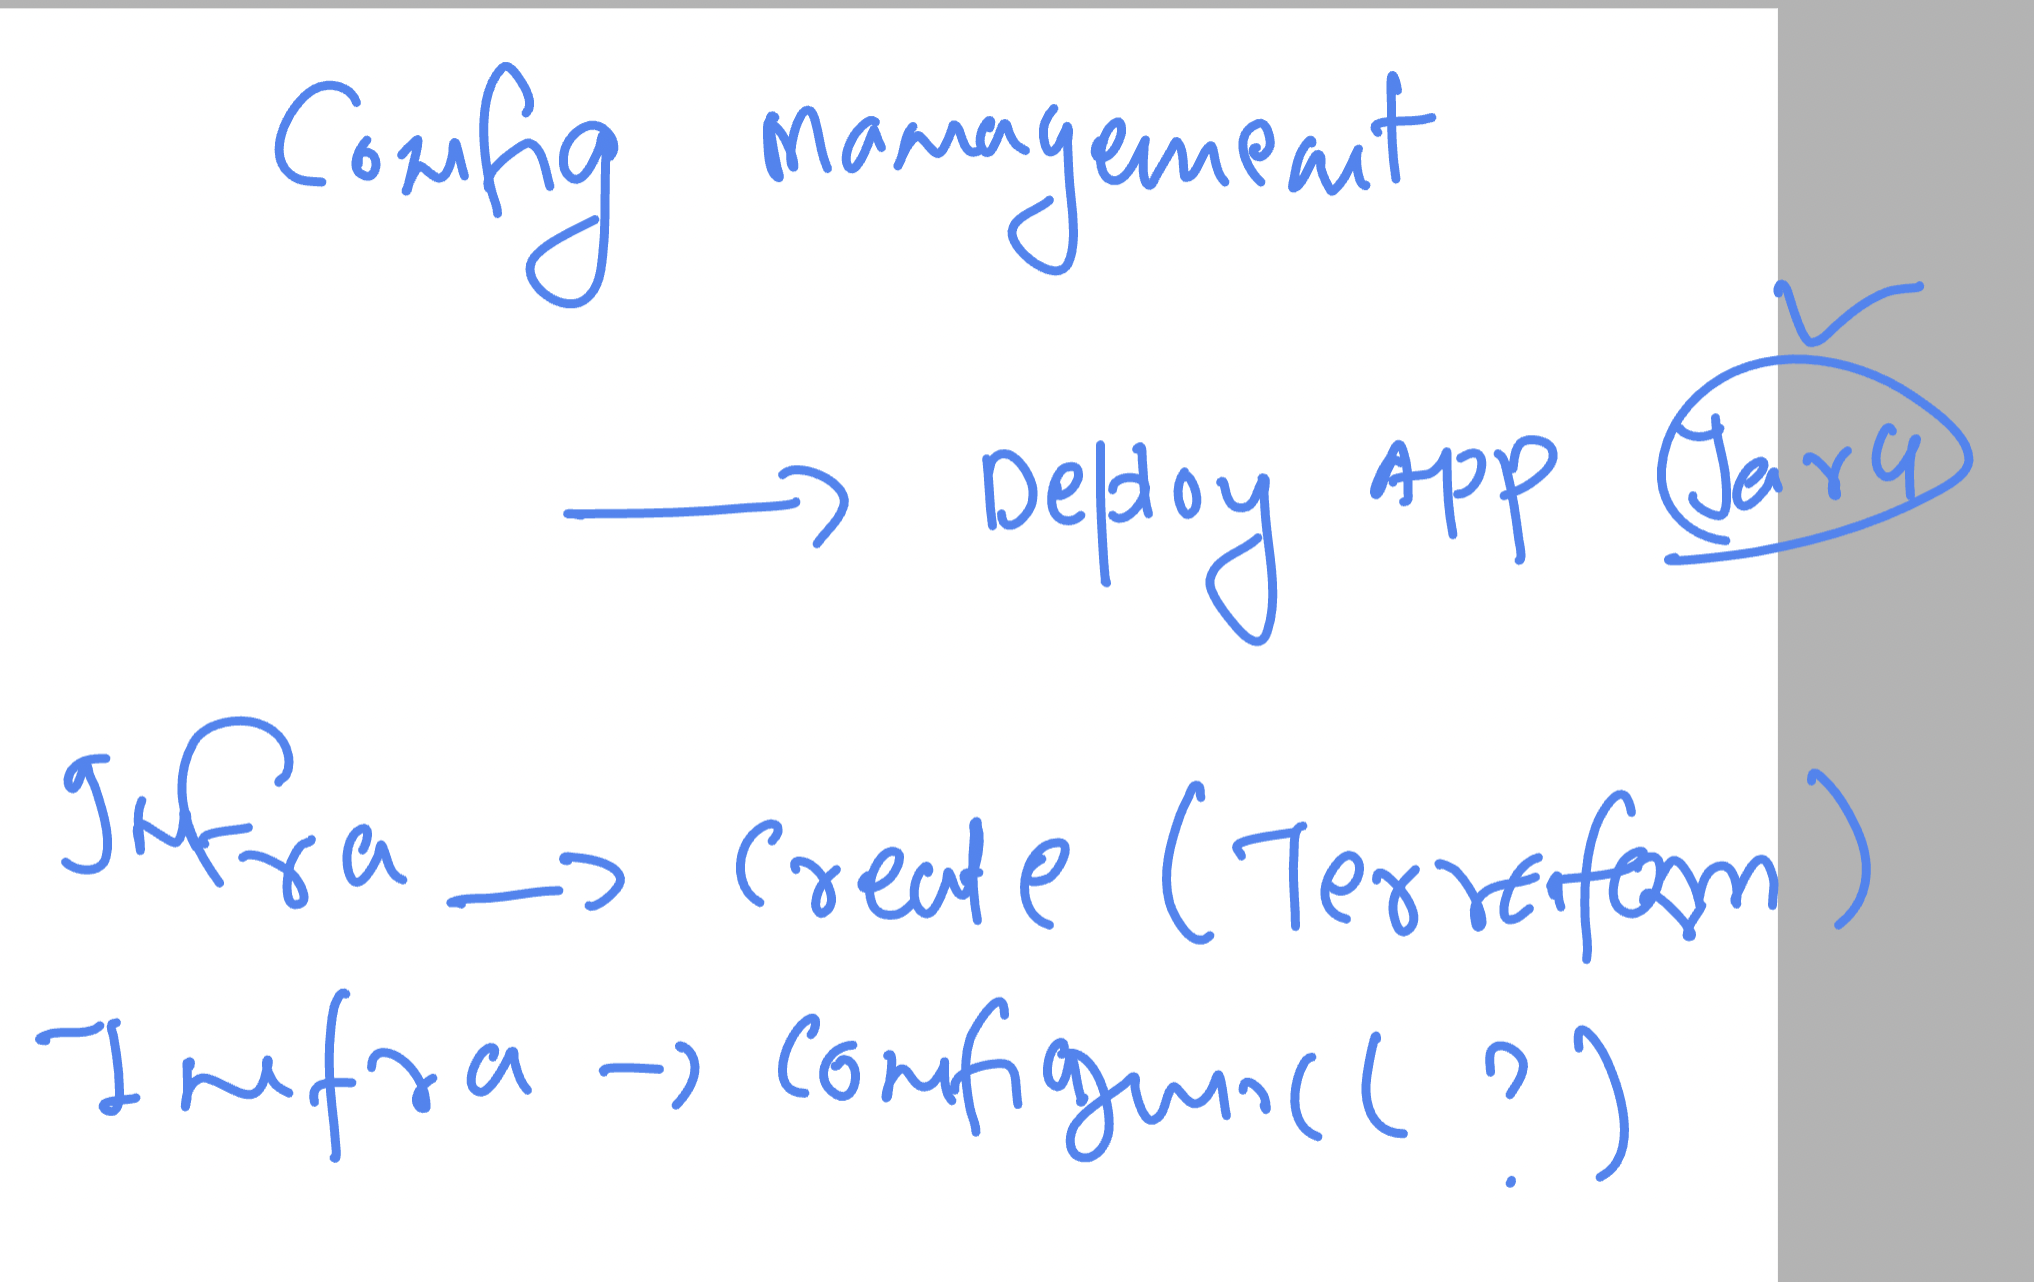 Config management
→ Deploy App Java
Infra → Create (Terraform)
Infra → Configure (?)